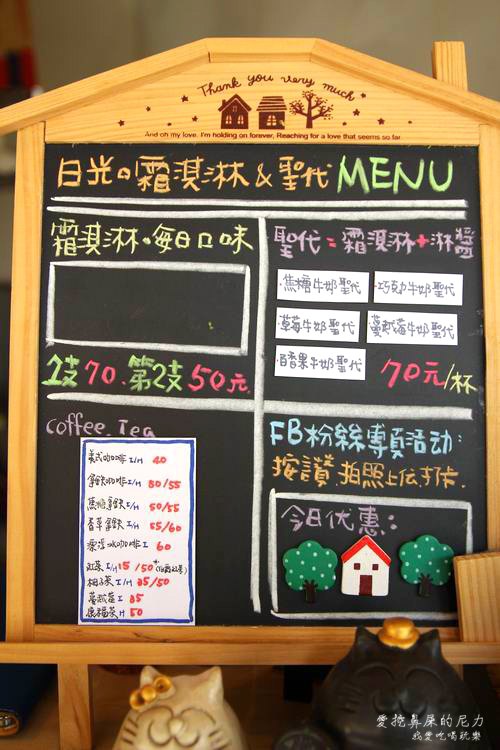 Thank you very much
And oh my love. I'm holding on forever, Reaching for a love that seems so far
日光の霜淇淋&聖代MENU
霜淇淋・每日口味
1支70.第2支50元
聖代=霜淇淋+淋醬
焦糖牛奶聖代
巧克力牛奶聖代
草莓牛奶聖代
蔓越莓牛奶聖代
百香果牛奶聖代
70元/杯
coffee.Tea
美式咖啡 I/H 40
拿鐵咖啡 I/H 50/55
焦糖拿鐵 I/H 50/55
香草拿鐵 I/H 55/60
漂浮冰咖啡 I 60
紅茶 I/H 15/50
柚子茶 I/H 35/50
蔓越莓 I 35
康福茶 H 50
FB粉絲專頁活动:
按讚.拍照上伝.打卡.
今日优惠:
愛挖鼻屎的尼力
我愛吃喝玩樂